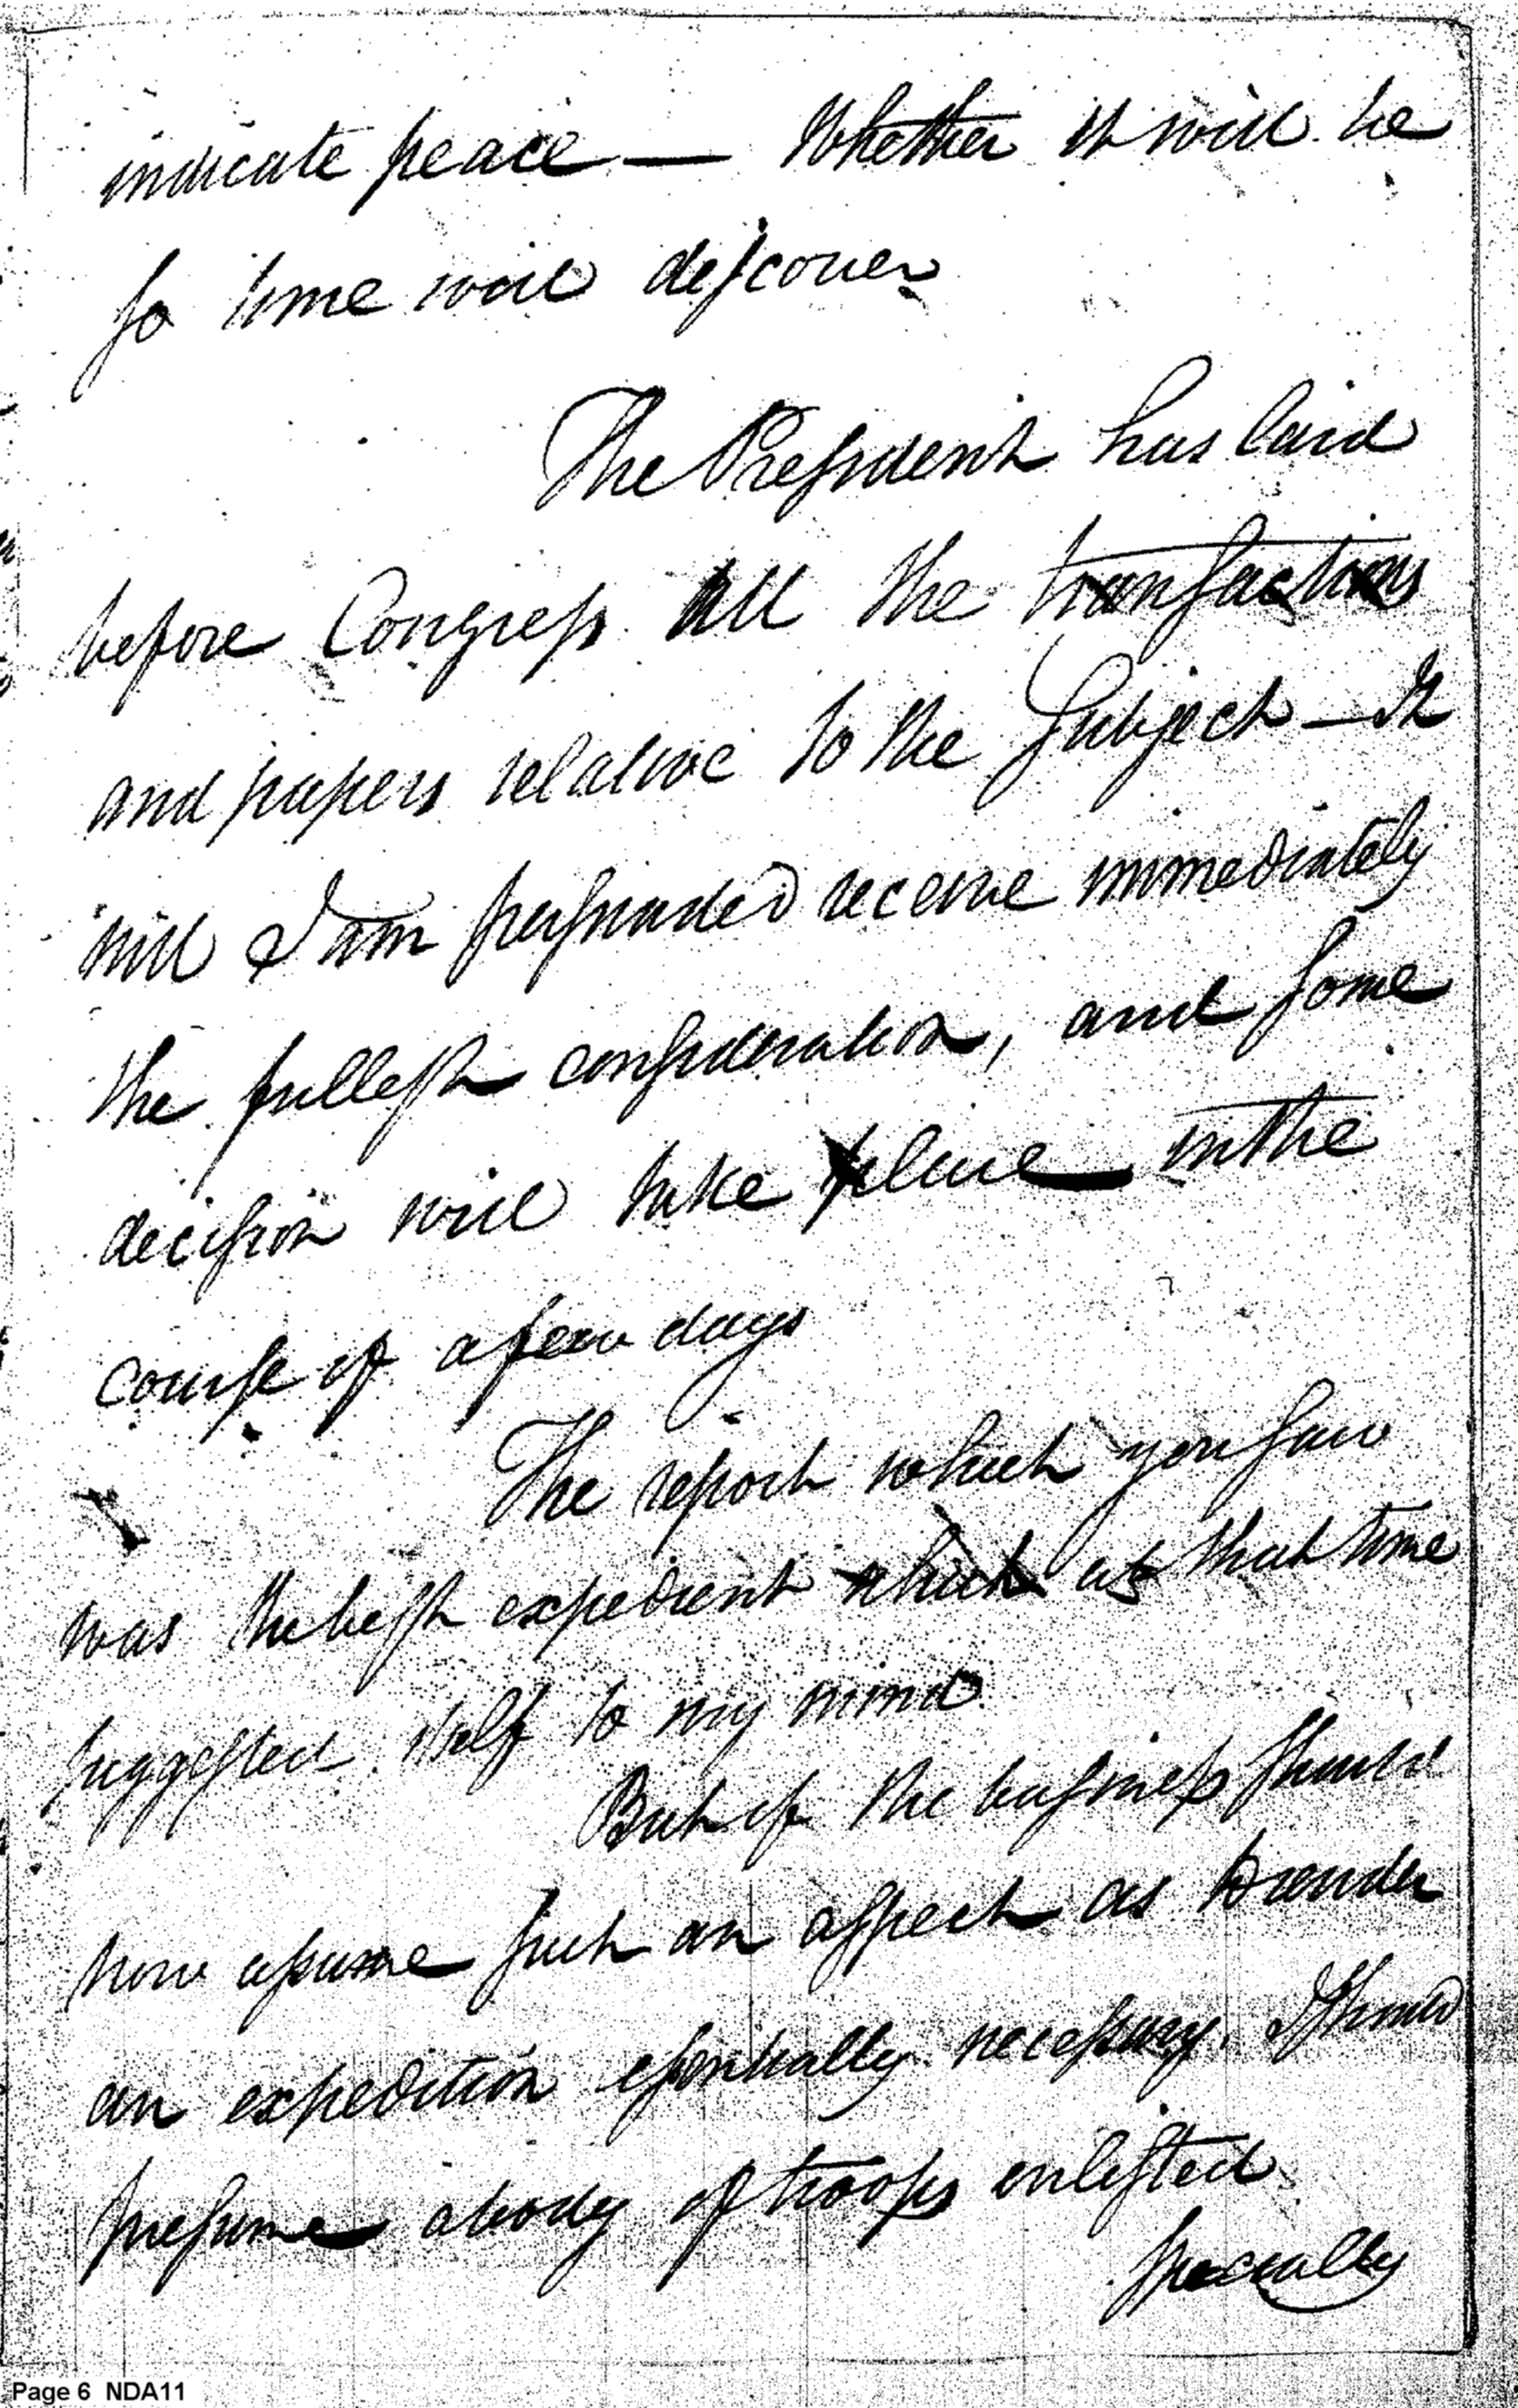 indicate peace — Whether it will be
so time will discover
The President has laid
before Congress all the transactions
and papers relative to the subject — It
will I am persuaded receive immediately
the fullest consideration, and some
decision will take place in the
course of a few days
The report which you saw
was the best expedient which at that time
suggested itself to my mind
But if the business should
now assume such an aspect as to render
an expedition essentially necessary, I should
presume a body of troops enlisted
specially
Page 6 NDA11